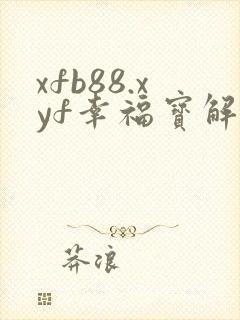 xfb88.x
yf幸福寳解
莽浪